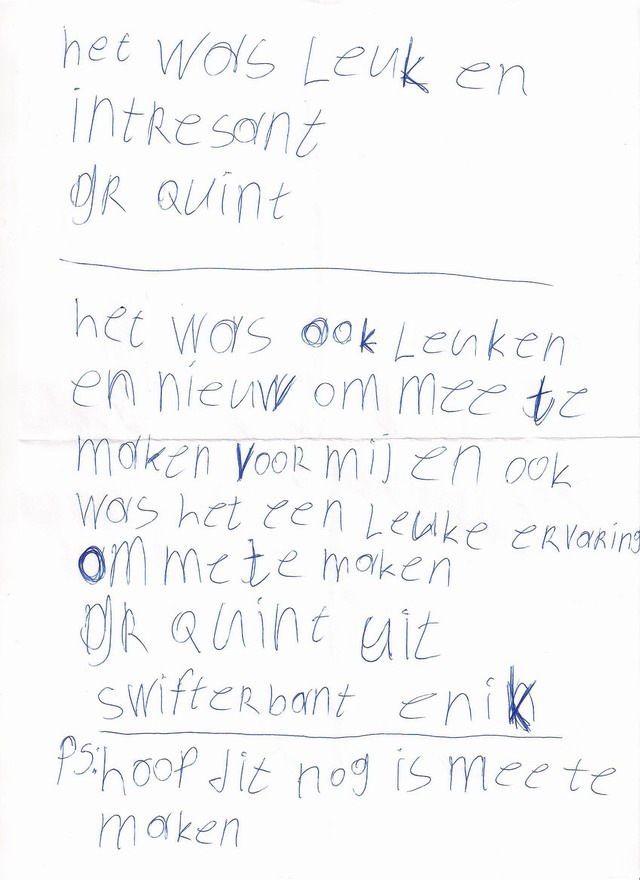 het was Leuk en
intResant
gR Quint
het was ook Leuken
en nieuw om mee te
maken vooR mij en ook
was het een Leuke eRvaring
om me te maken
gR Quint uit
swifteRbant en ik
PS: hoop dit nog is mee te
maken